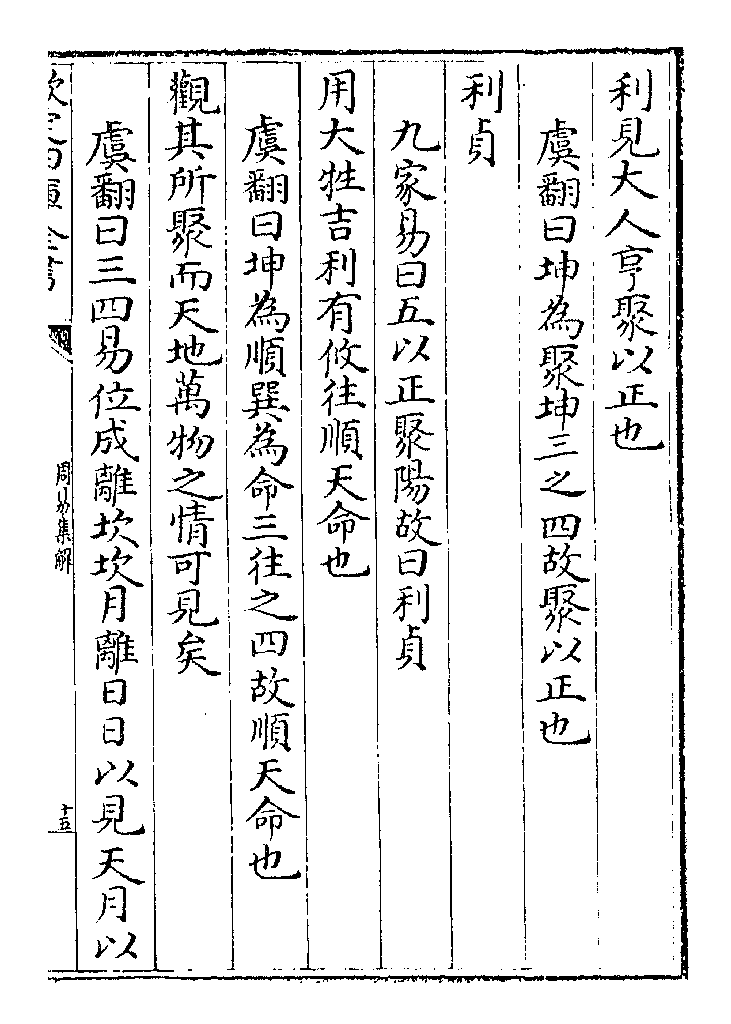 利見大人亨聚以正也
虞翻曰坤為聚坤三之四故聚以正也
利貞
九家易曰五以正聚陽故曰利貞
用大牲吉利有攸往順天命也
虞翻曰坤為順巽為命三往之四故順天命也
觀其所聚而天地萬物之情可見矣
虞翻曰三四易位成離坎坎月離日日以見天月以
欽定四庫全書
周易集解
十五